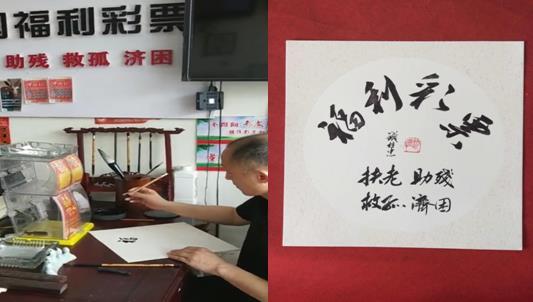 国福利彩票
助残 救孤 济困
福利彩票
扶老 助残
救孤 濟困